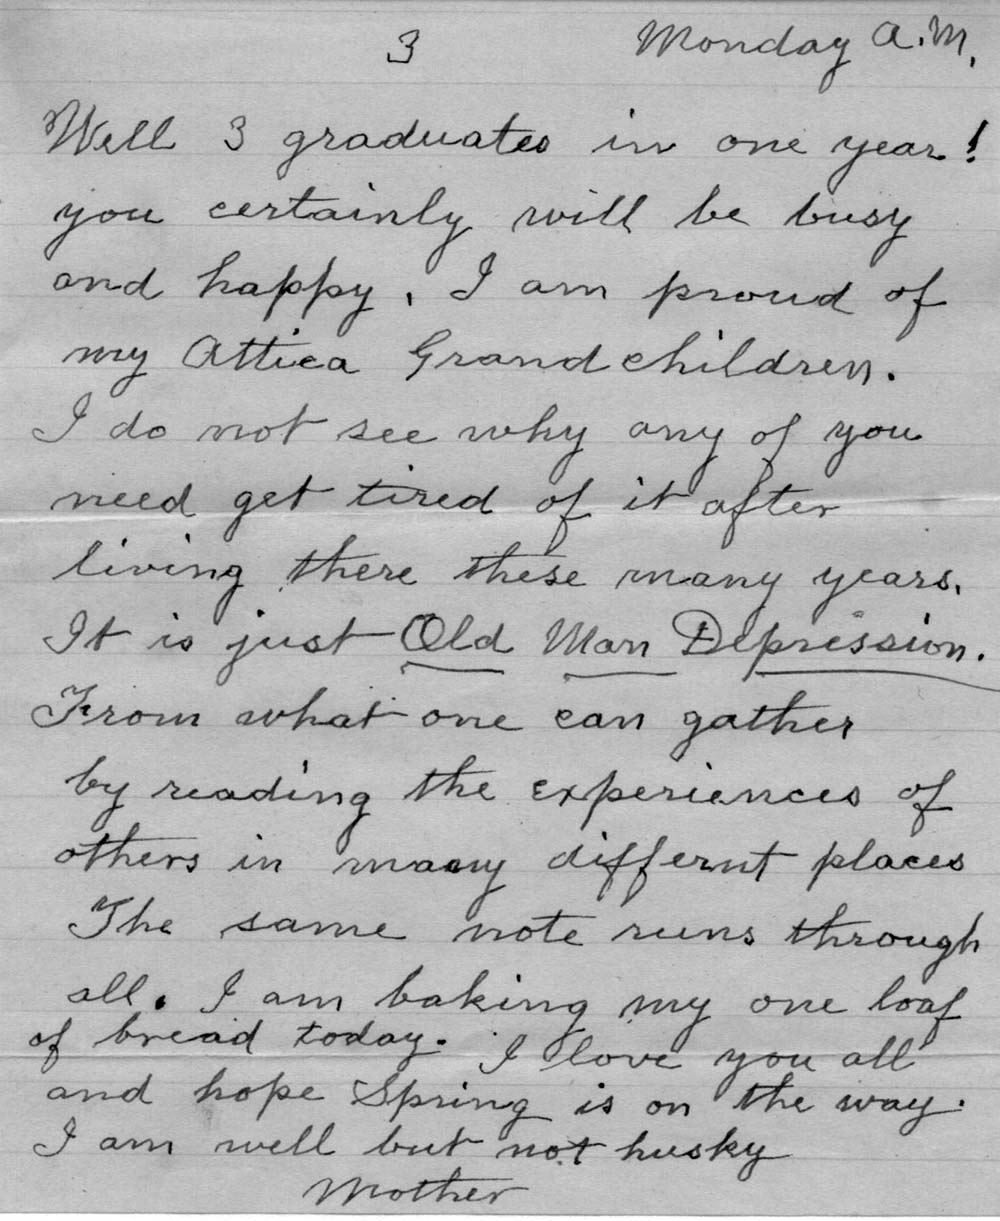 3 Monday A.M.
Well 3 graduates in one year!
you certainly will be busy
and happy. I am proud of
my Attica Grandchildren.
I do not see why any of you
need get tired of it after
living there these many years.
It is just Old Man Depression.
From what one can gather
by reading the experiences of
others in many differnt places
The same note runs through
all. I am baking my one loaf
of bread today. I love you all
and hope Spring is on the way.
I am well but not husky
Mother